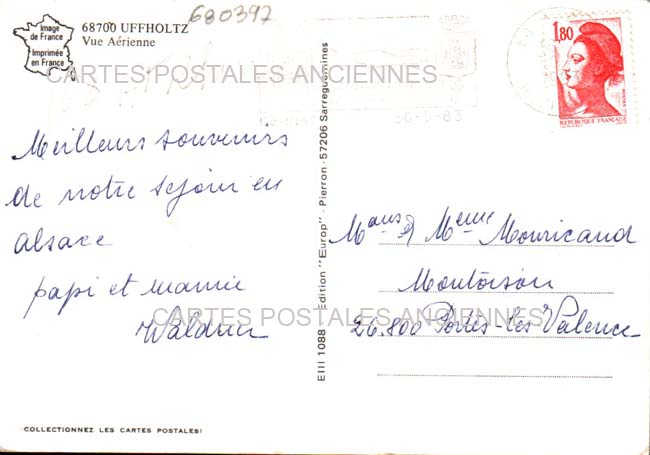 Image
de France
Imprimée
en France
68700 UFFHOLTZ
Vue Aérienne
680392
CARTES POSTALES ANCIENNES
1,80
REPUBLIQUE FRANÇAISE
Meilleurs souvenirs
de notre séjour en
alsace
papi et mamie
EIII 1088 Edition "Europ" - Pierron - 57206 Sarreguemines
Mr et Mme Mouricand
Montoison
26.800 Portes-Les Valence
CARTES POSTALES ANCIENNES
COLLECTIONNEZ LES CARTES POSTALES!